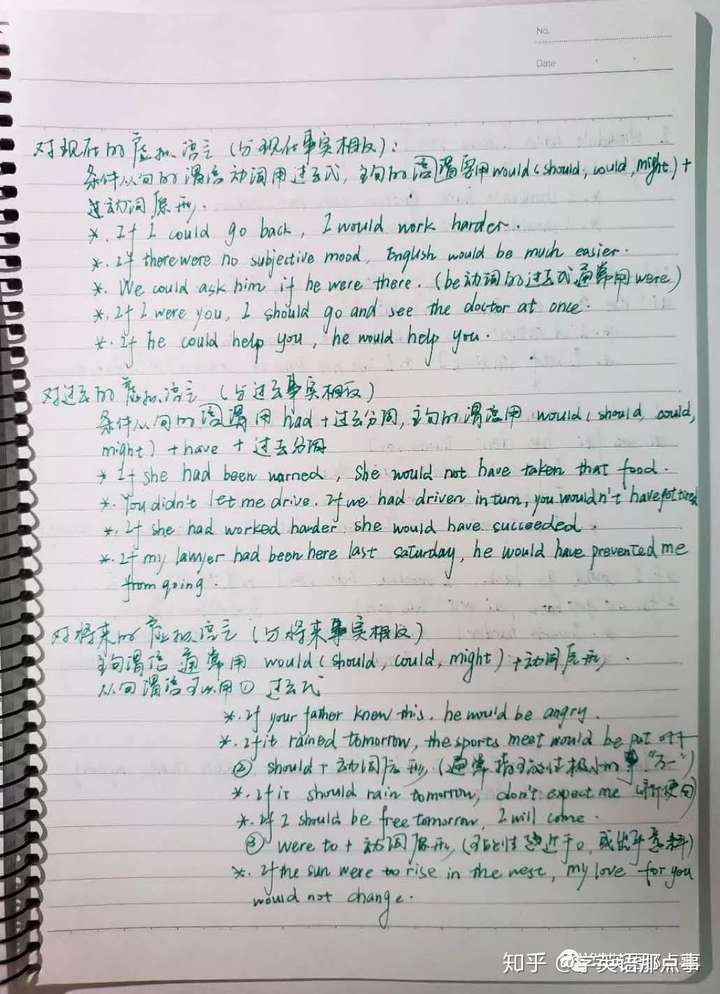 No.
Date
对现在的虚拟语气 (与现在事实相反):
条件从句的谓语动词用过去式, 主句的谓语用would(should, could, might)+
动词原形.
*. If I could go back, I would work harder.
*. If there were no subjective mood, English would be much easier.
*. We could ask him if he were there. (be动词的过去式通常用were)
*. If I were you, I should go and see the doctor at once.
*. if he could help you, he would help you.
对过去的虚拟语气 (与过去事实相反)
条件从句的谓语用 had+过去分词, 主句的谓语用 would(should, could,
might) + have + 过去分词
* If she had been warned, she would not have taken that food.
*. You didn't let me drive. If we had driven in turn, you wouldn't have got tired
*. If she had worked harder, she would have succeeded.
*. If my lawyer had been here last saturday, he would have prevented me
from going.
对将来的虚拟语气 (与将来事实相反)
主句谓语通常用 would(should, could, might) + 动词原形,
从句谓语可以用① 过去式
*. If your father knew this, he would be angry.
*. If it rained tomorrow, the sports meet would be put off
② should + 动词原形, (通常指可能性极小的事 "万一")
*. If it should rain tomorrow, don't expect me (祈使句)
*. If I should be free tomorrow, I will come.
③ were to + 动词原形, (可能性趋近于0, 或出乎意料)
*. If the sun were to rise in the west, my love for you
would not change.
知乎 @学英语那点事